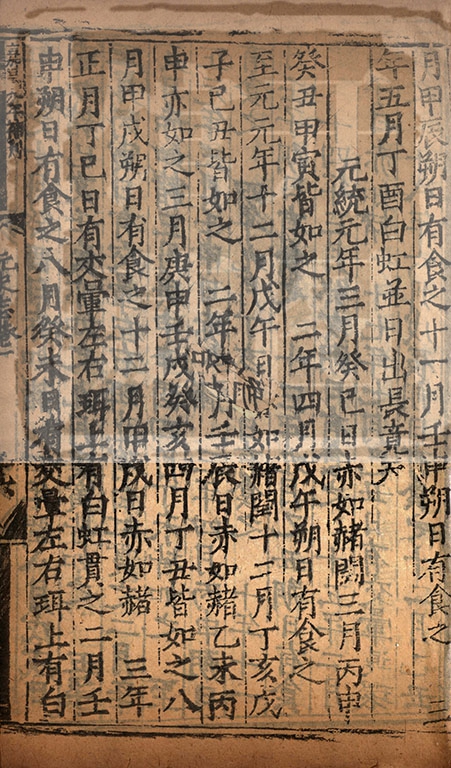 月甲辰朔日有食之十一月壬申朔日有食之
年五月丁酉白虹並日出長竟天
元統元年三月癸巳日赤如赭閏三月丙申
癸丑甲寅皆如之 二年四月戊午朔日有食之
至元元年十二月戊午日如赭閏十二月丁亥戊
子己丑皆如之 二年月壬辰日赤如赭乙未丙
申亦如之三月庚申壬戌癸亥四月丁丑皆如之八
月甲戌朔日有食之十二月甲戌日赤如赭 三年
正月丁巳日有交暈左右珥上有白虹貫之二月壬
申朔日有食之八月癸未日有交暈左右珥上有白
二